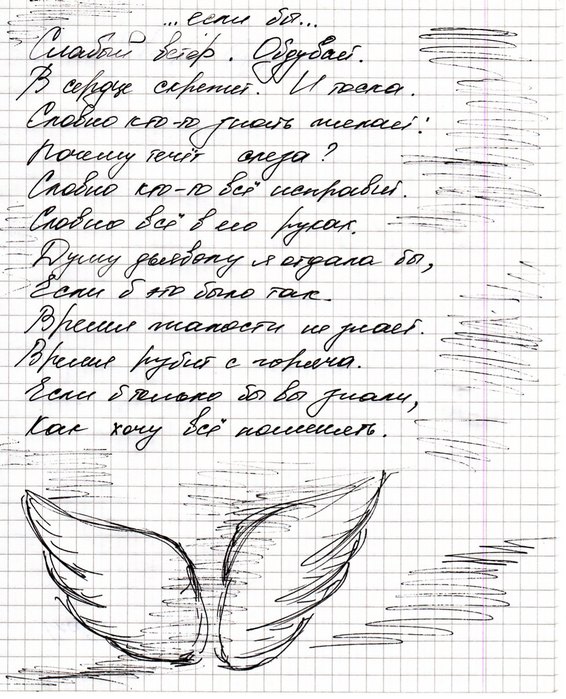 ...если бы...
Слабый ветер. Обдувает.
В сердце скрежет. И тоска.
Словно кто-то знать желает:
Почему течёт слеза?
Словно кто-то всё исправит.
Словно всё в его руках.
Душу дьяволу я отдала бы,
Если б это было так.
Время жалости не знает.
Время рубит с горяча.
Если б только бы вы знали,
Как хочу всё поменять.